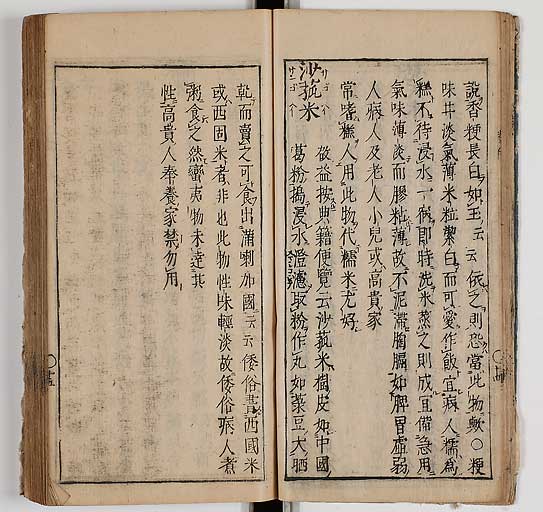 說香粳長白如玉云云依之則恐當此物歟○粳
味甘淡氣薄米粒潔白而可愛作飯宜病人糯爲
糕不待浸水一夜即時洗米蒸之則成宜備急用
氣味薄淡而膠粘薄故不泥滯胸膈如脾胃虛弱
人病人及老人小兒或高貴家
常嗜糕人用此物代糯米尤好
沙菰米
欲益按典籍便覽云沙菰米樹皮如中國
葛粉搗浸水澄濾取粉作丸如菉豆大晒
乾而賣之可食出蒲喇加國云云倭俗畫西國米
或西國米者非也此物性味輕淡故倭俗病人煮
粥食之然蠻夷物未達其
性高貴人奉養家禁勿用